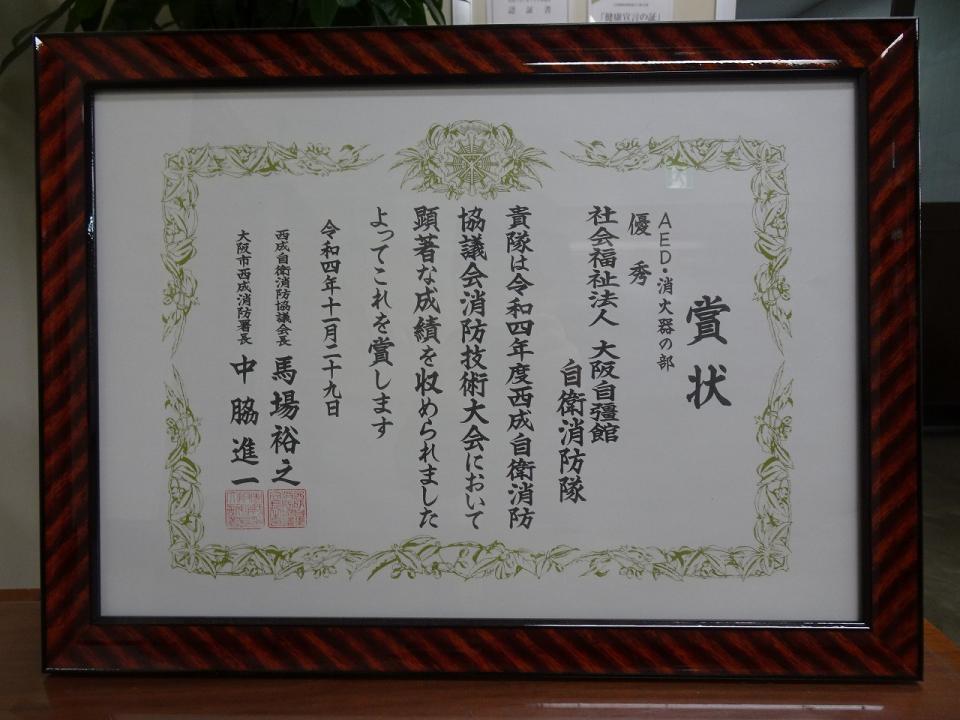 認証書
「健康宣言の証」
賞状
AED・消火器の部
優秀
社会福祉法人 大阪自彊館
自衛消防隊
貴隊は令和四年度西成自衛消防
協議会消防技術大会において
顕著な成績を収められました
よってこれを賞します
令和四年十一月二十九日
西成自衛消防協議会長 馬場裕之
大阪市西成消防署長 中脇進一